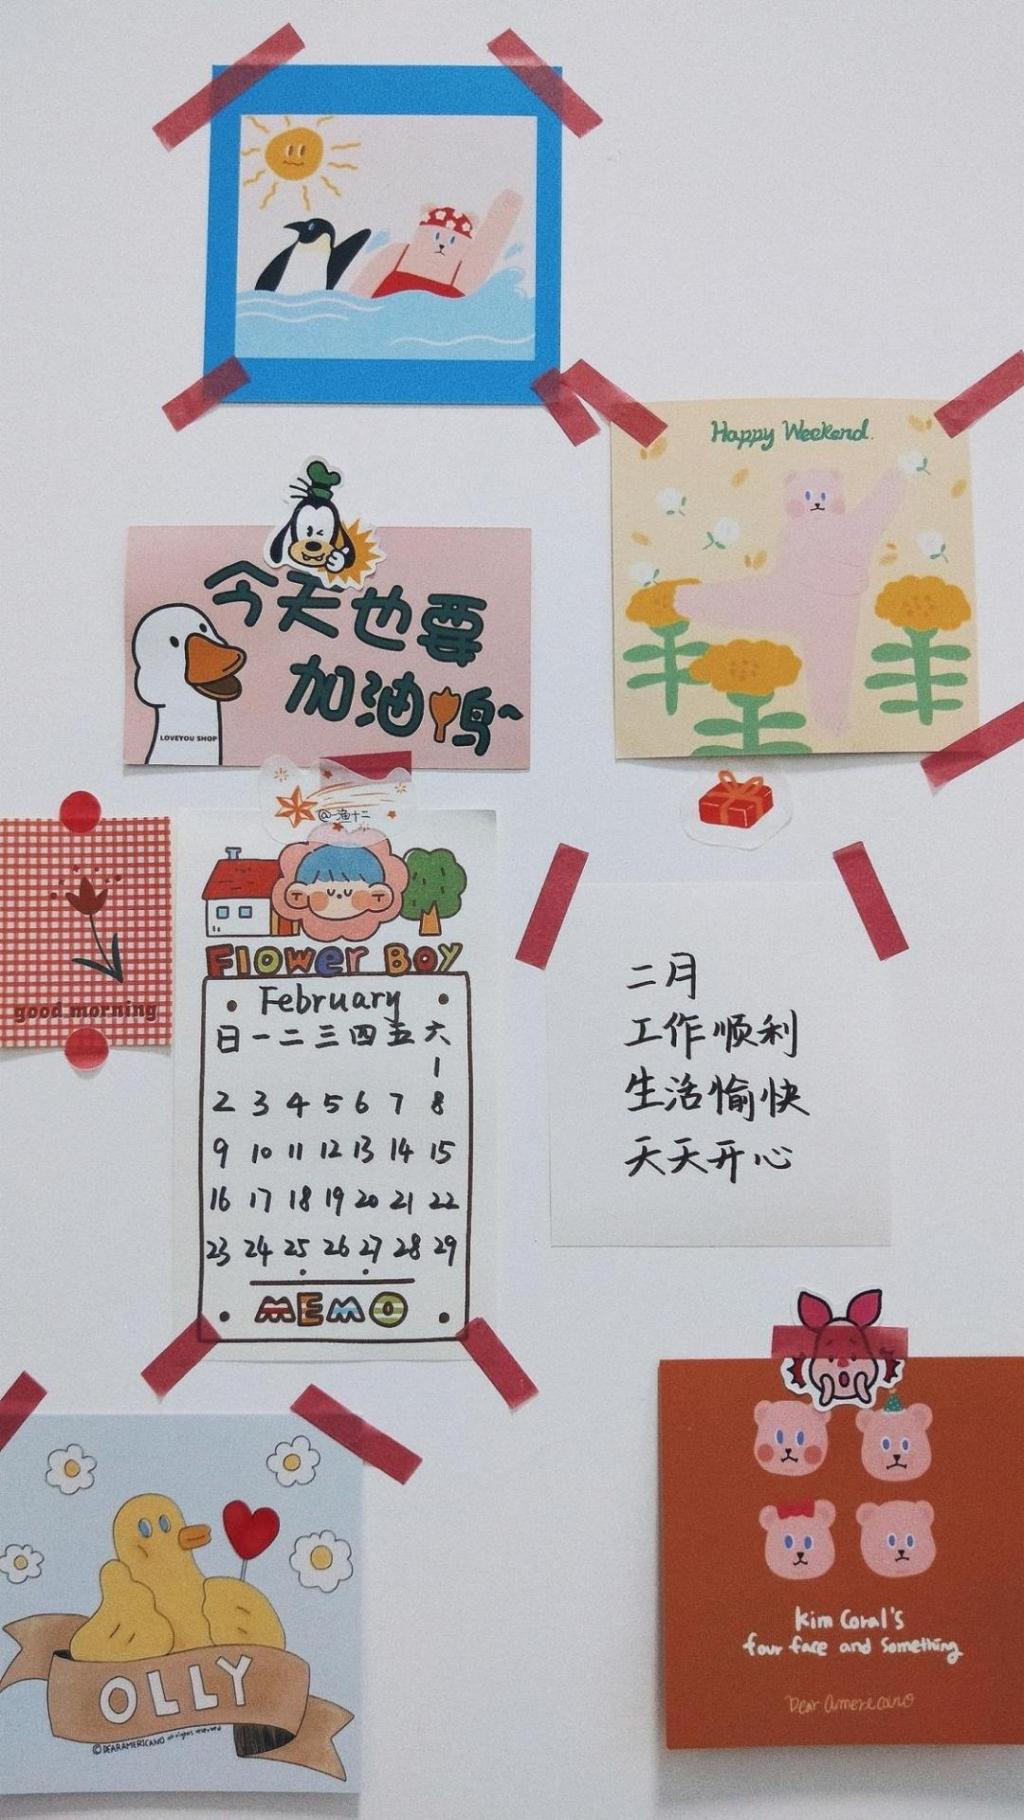 Happy Weekend.
今天也要
加油鸭~
LOVEYOU SHOP
@一渔十二
good morning
FLOWER BOY
February
日 一 二 三 四 五 六
1
2 3 4 5 6 7 8
9 10 11 12 13 14 15
16 17 18 19 20 21 22
23 24 25 26 27 28 29
MEMO
二月
工作顺利
生活愉快
天天开心
OLLY
©DEARAMERICANO all rights reserved
kim Coral's
four face and something
Dear Americano